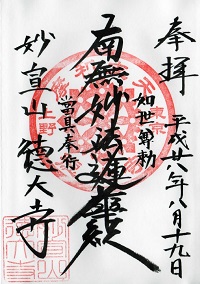 奉拝
平成廿八年八月十九日
如世尊勅
南無妙法蓮華経
當具奉行
妙宣山
徳大寺
東京
上野